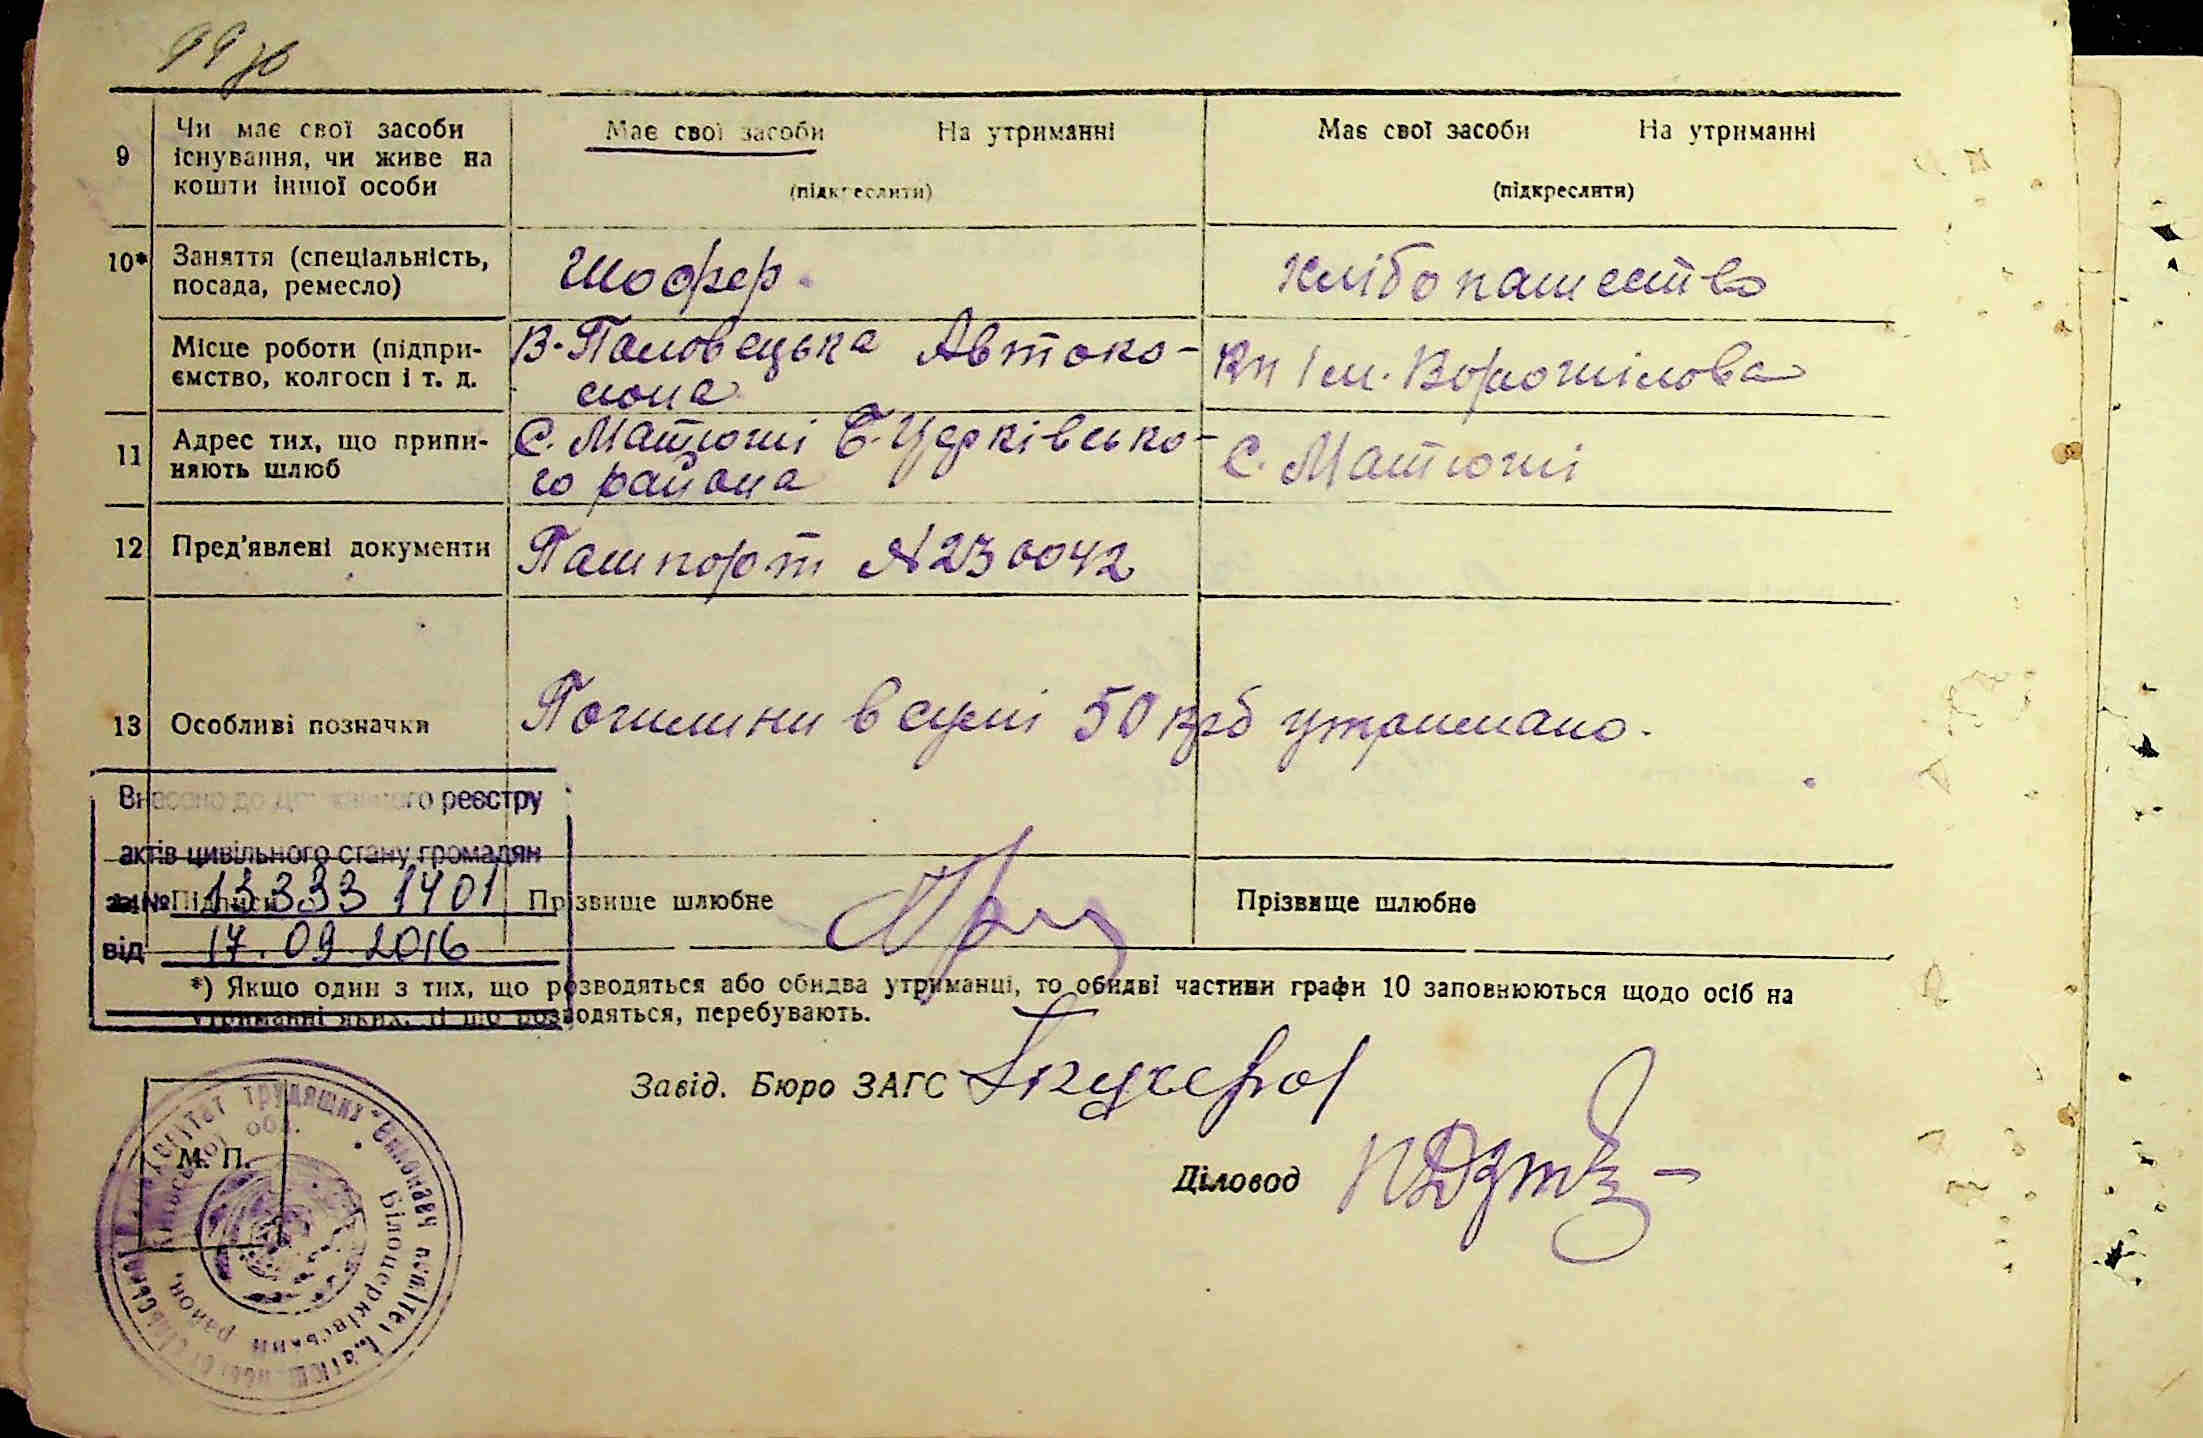 99 зв
9
Чи має свої засоби
існування, чи живе на
кошти іншої особи
Має свої засоби На утриманні
(підкреслити)
Має свої засоби На утриманні
(підкреслити)
10*
Заняття (спеціальність,
посада, ремесло)
Шофер.
хлібопашество
Місце роботи (підпри-
ємство, колгосп і т. д.
В-Половецька Автоко-
лона
Кп Ім. Ворошілова
11
Адрес тих, що припи-
няють шлюб
С. Матюші Б-Церківсько-
го района
С. Матюші
12
Пред'явлені документи
Пашпорт №230042
13
Особливі позначки
Пошлини в сумі 50 крб утримано.
Внесено до Державного реєстру
актів цивільного стану громадян
за № 13333 1401
від 17.09.2016
Підписи
Прізвище шлюбне
Прізвище шлюбне
*) Якщо один з тих, що розводяться або обидва утриманці, то обидві частини графи 10 заповнюються щодо осіб на
утриманні яких, ті що розводяться, перебувають.
Завід. Бюро ЗАГС
Діловод
М. П.
трудящих Виконавч
Київської обл.
Білоцерківський район